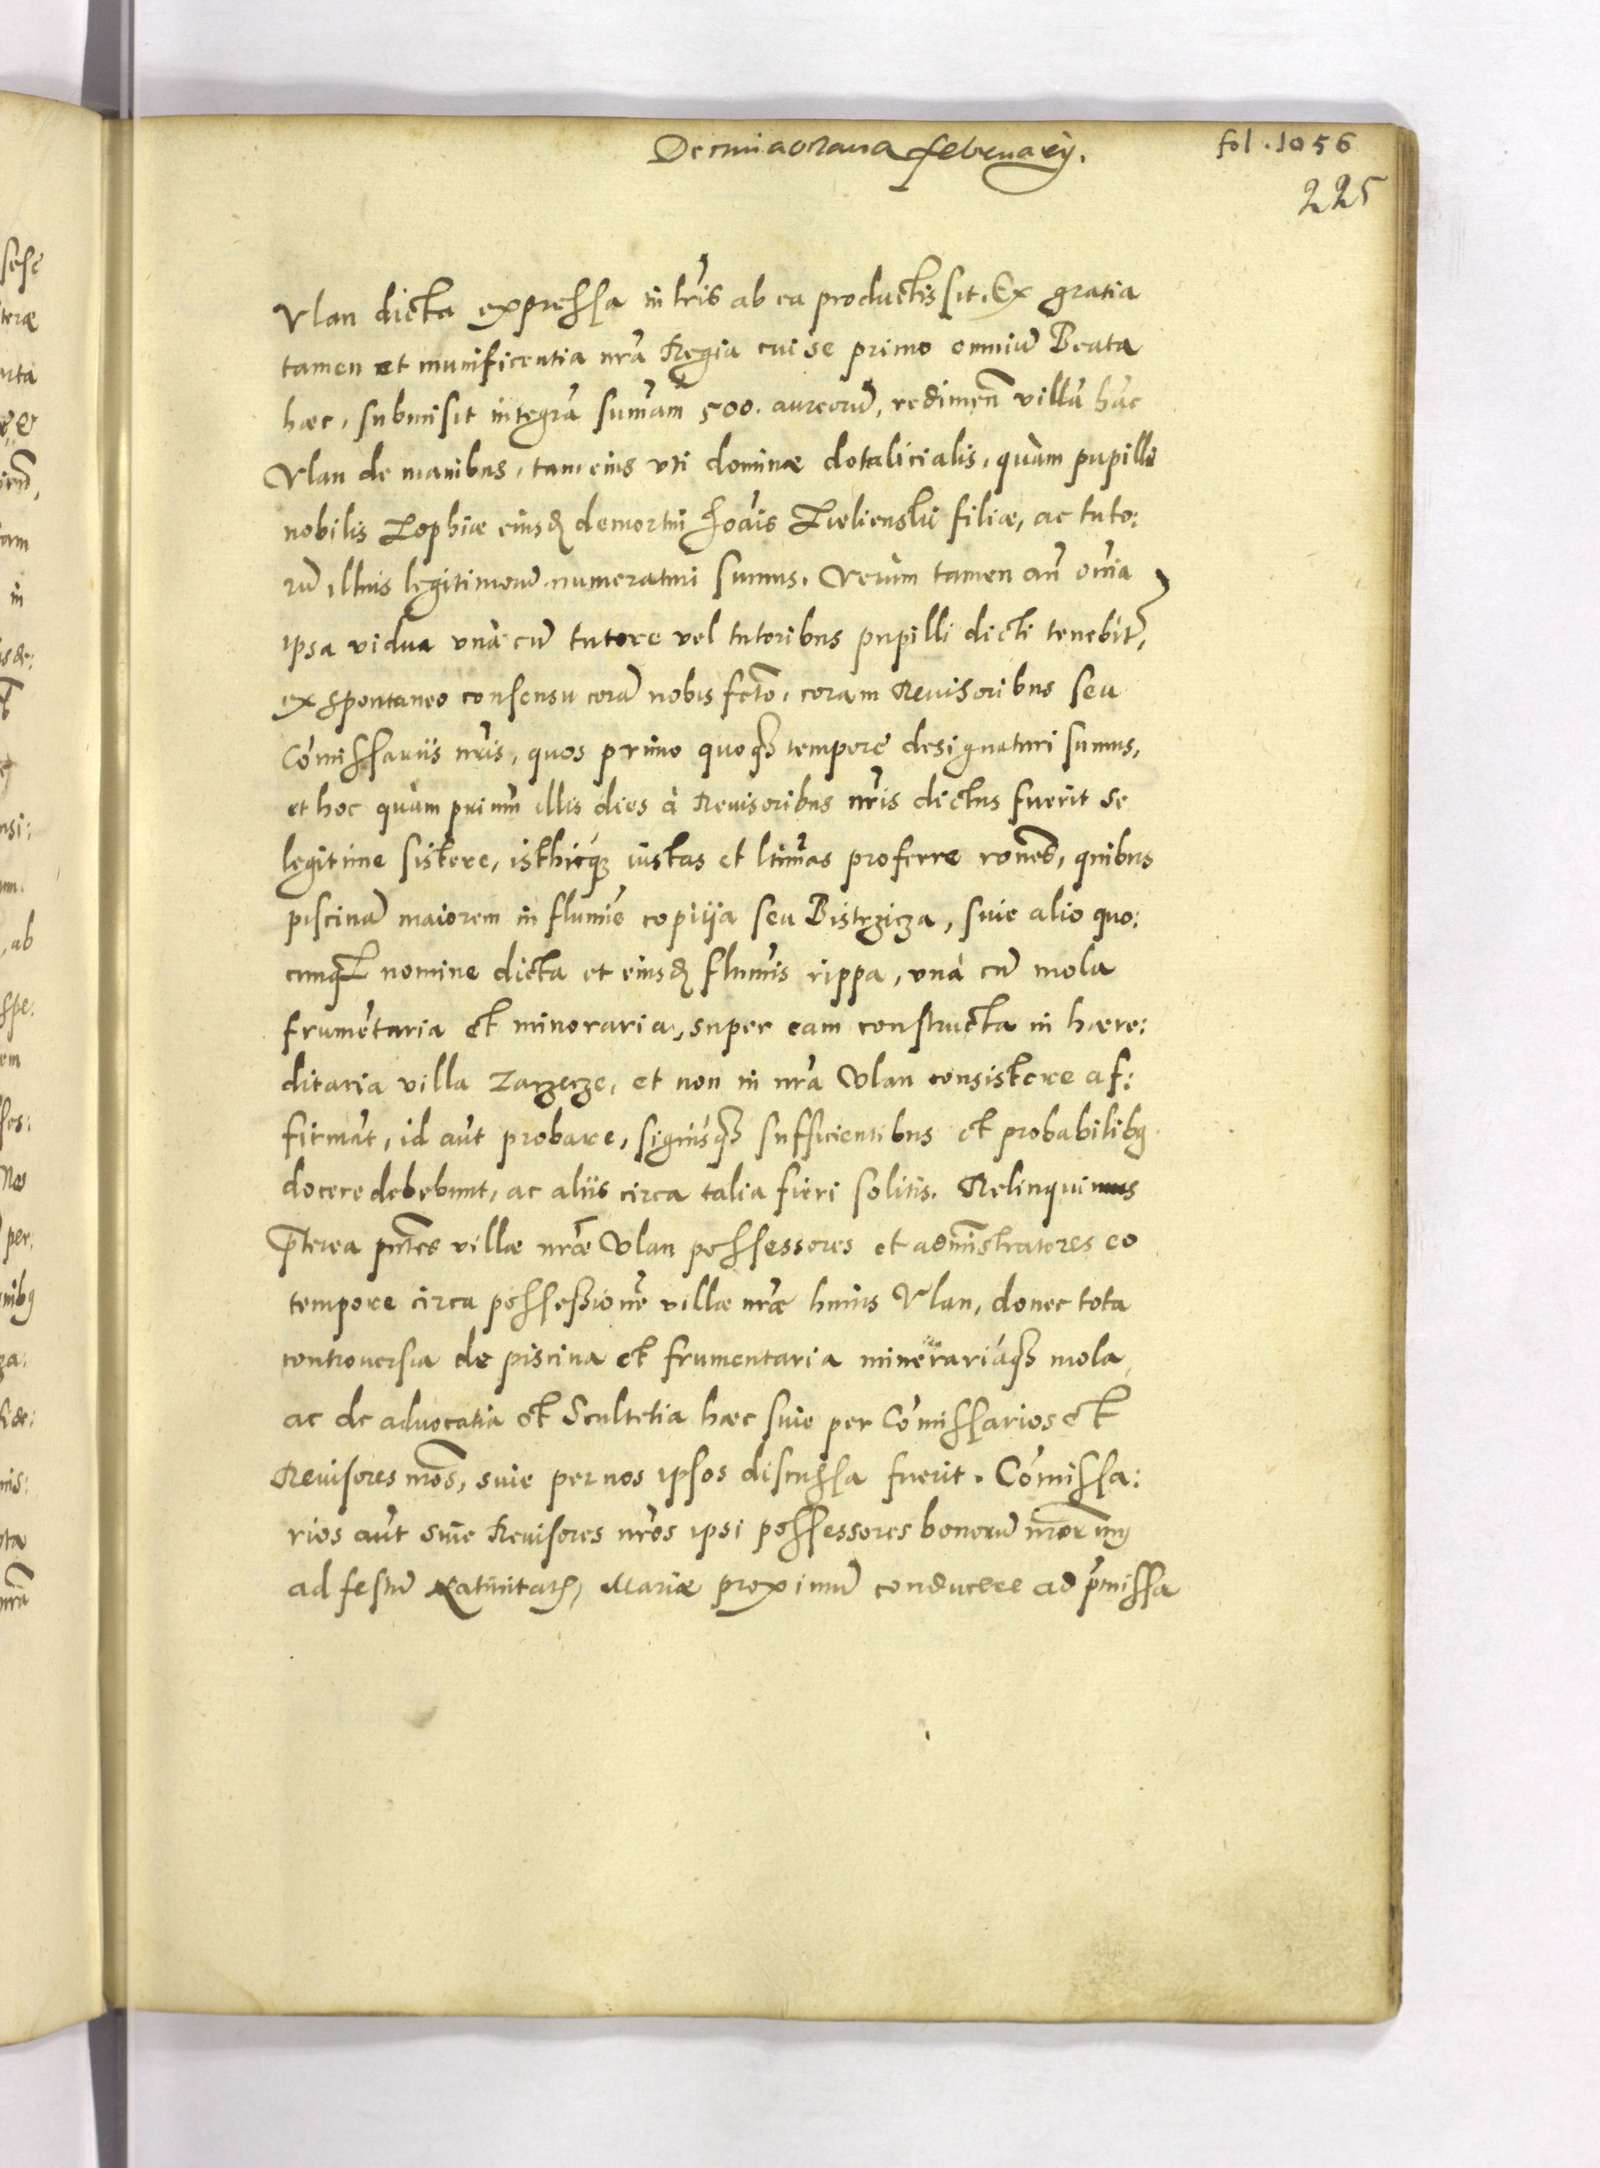 Decimaoctaua february.
fol. 1056
225
Vlan dicta expressa in lr̃is ab ea productis sit. Ex gratia
tamen et munificentia nr̃a Regia cui se primo omniũ Beata
hæc, submisit integrã summam 500. aureorũ, redimeñ villã hãc
Vlan de manibus, tam eius vti dominæ dotalicialis, quàm pupilli
nobilis Zophiæ eiusđ demortui Joãis Zielienski filiæ, ac tuto:
rũ illius legitimorũ numeraturi sumus. Verùm tamen añ oĩa
ipsa vidua vnà cũ tutore vel tutoribus pupilli dicti tenebit̃,
ex spontaneo consensu corã nobis fcto, coram Reuisoribus seu
Cõmissariis nr̃is, quos primo quoqȝ tempore designaturi sumus,
et hoc quàm primũ illis dies à Reuisoribus nr̃is dictus fuerit se
legitime sistere, isthicqȝ iustas et ltĩmas proferre rones̃, quibus
piscinã maiorem in flumĩe copiija seu Bistrzicza, siue alio quo:
cunqȝ nomine dicta et eiusđ flumĩs rippa, vnà cũ mola
frumẽtaria et minoraria, super eam constructa in hære:
ditaria villa Zarzecze, et non in nr̃a Vlan consistere af:
firmãt, id aũt probare, signisqȝ sufficientibus et probabilibȝ
docere debebunt, ac aliis circa talia fieri solitis. Relinquimus
p̃terea pñtes villæ nr̃æ Vlan possessores et admĩstratores eo
tempore circa possessionẽ villæ nr̃æ huius Vlan, donec tota
controuersia de piscina et frumentaria minerariáqȝ mola
ac de aduocatia et Scultetia hæc siue per Cõmissarios et
Reuisores nr̃os, siue per nos ipsos discussa fuerit. Cõmissa:
rios aũt siue Reuisores nr̃os ipsi possessores bonorũ nr̃or
ad festũ Natiuitatis Mariæ proximũ conducere ad p̃missa